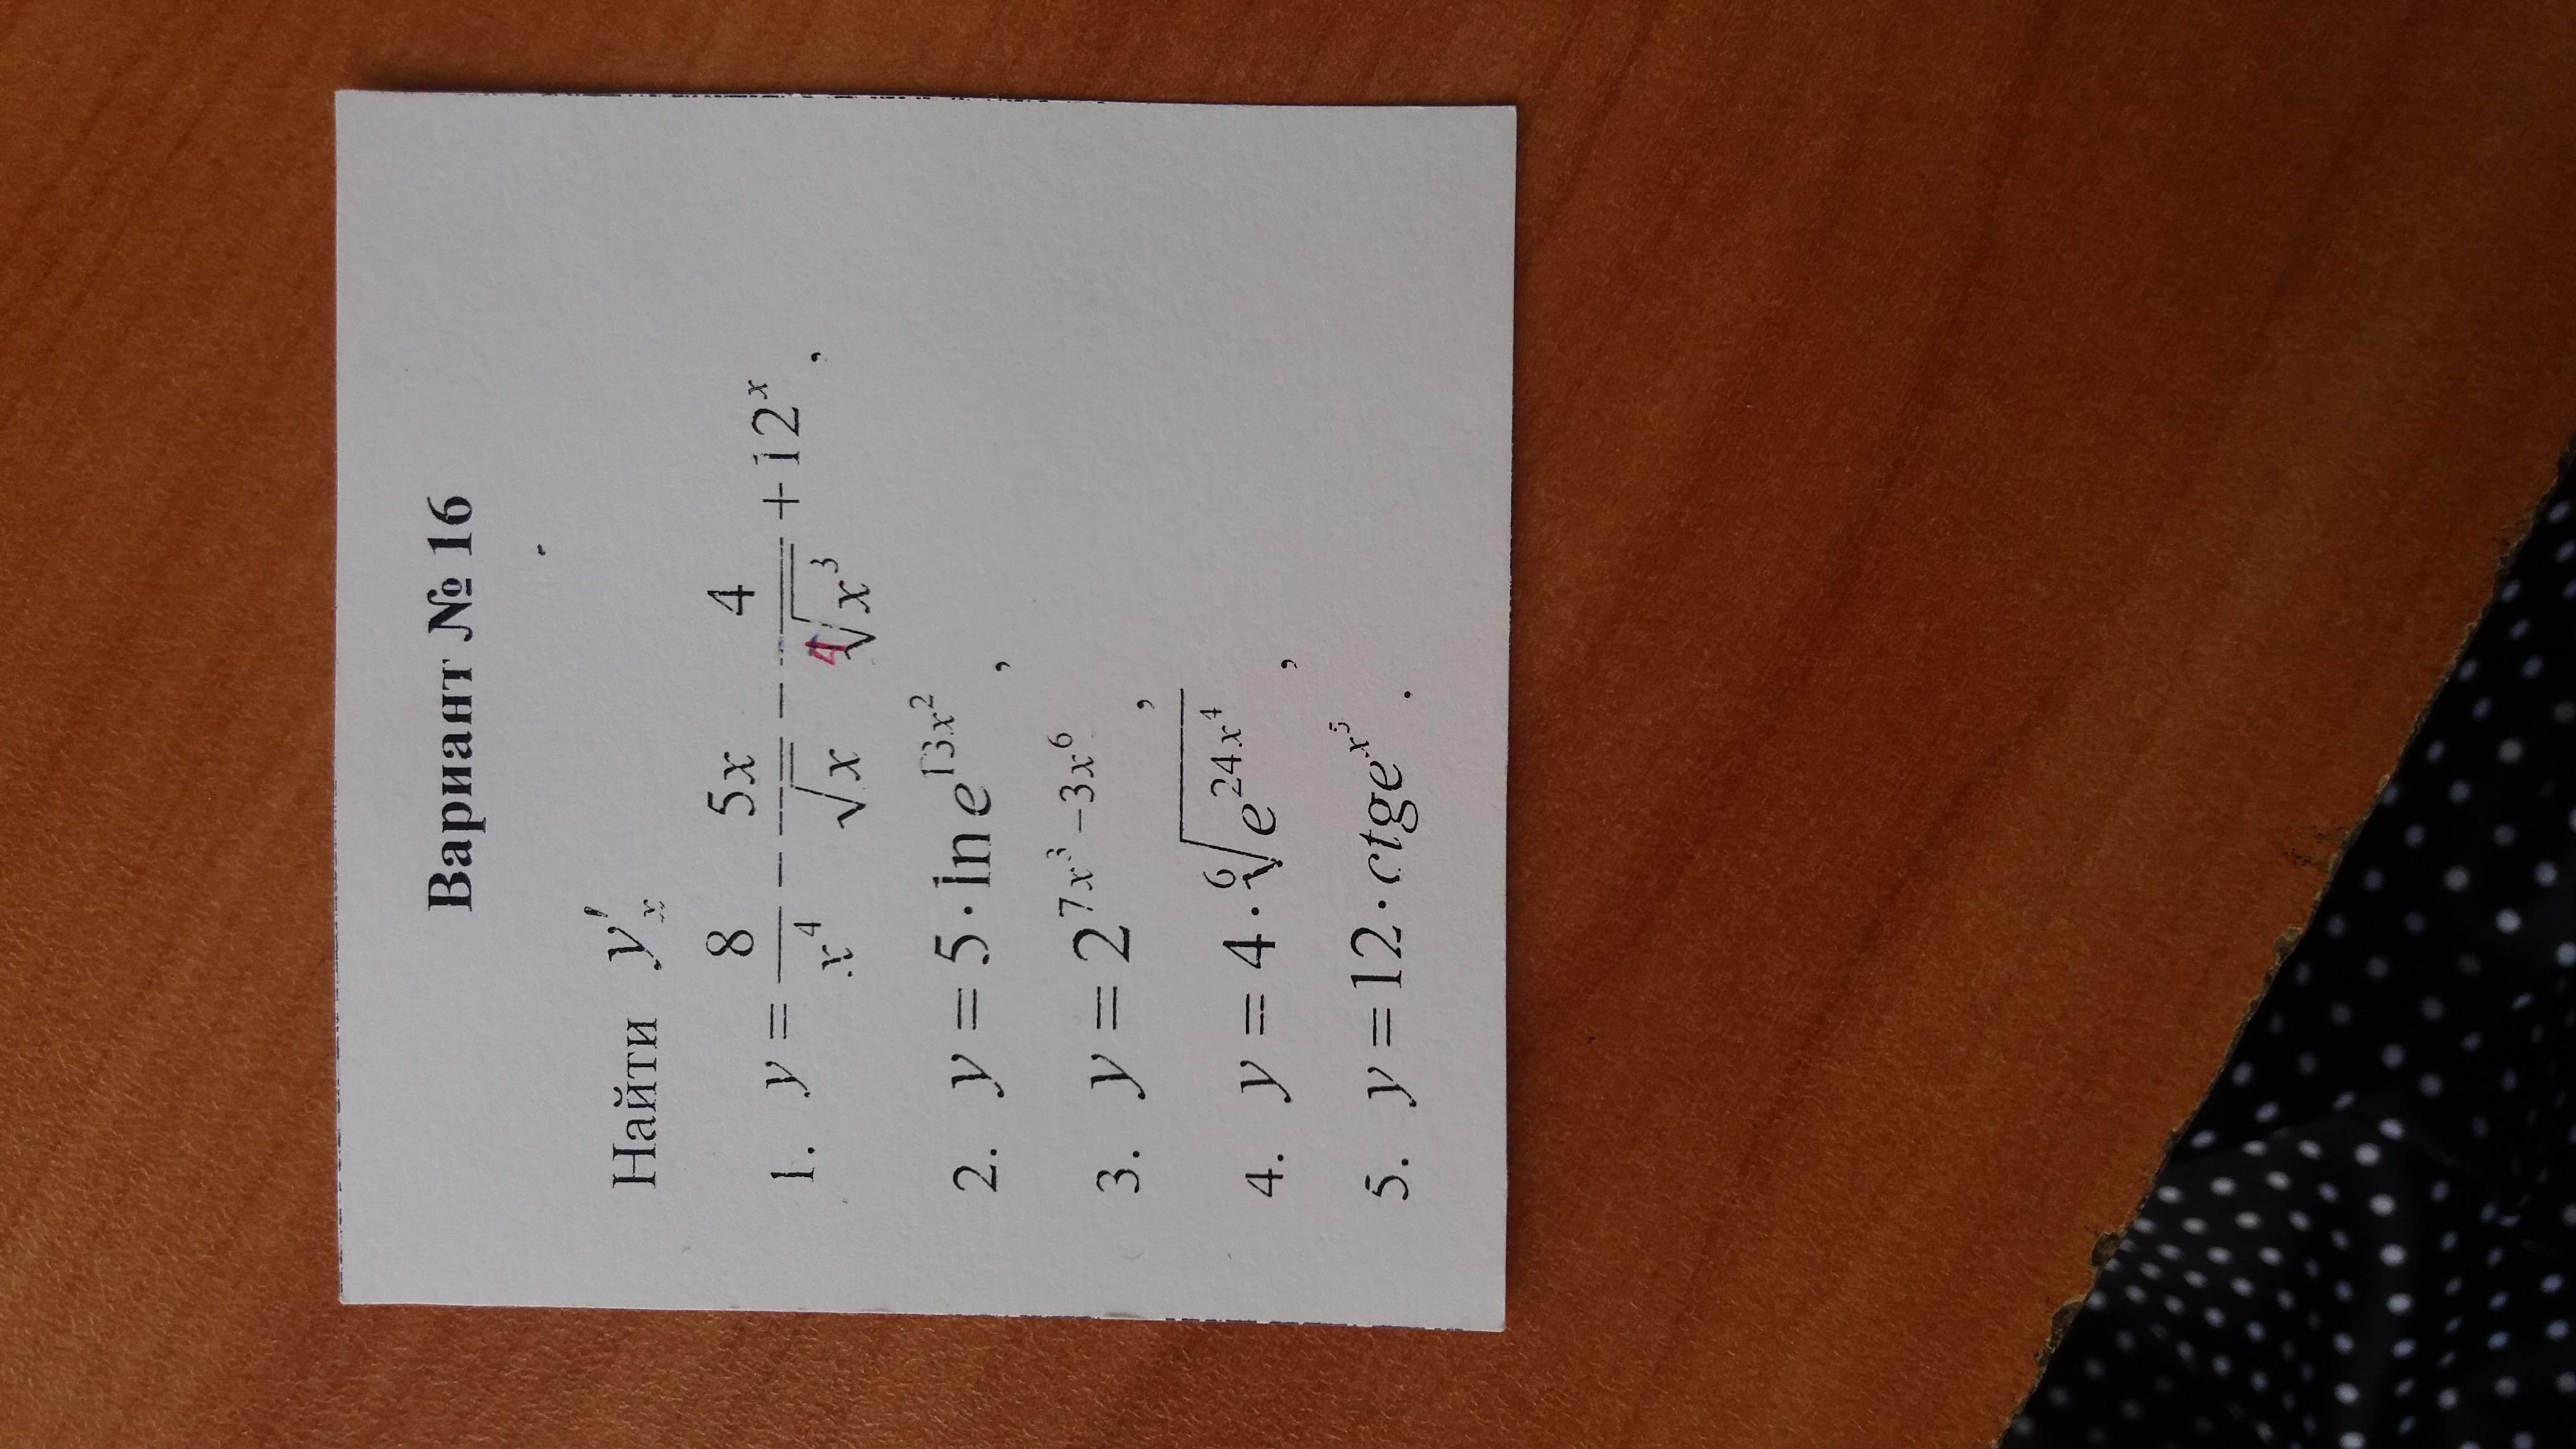 Вариант № 16
Найти y'ₓ
1. y = 8/x⁴ − 5x/√x − 4/⁴√x³ + 12ˣ,
2. y = 5·ln e^{13x²},
3. y = 2^{7x³−3x⁶},
4. y = 4·⁶√e^{24x⁴},
5. y = 12·ctge^{x⁵}.